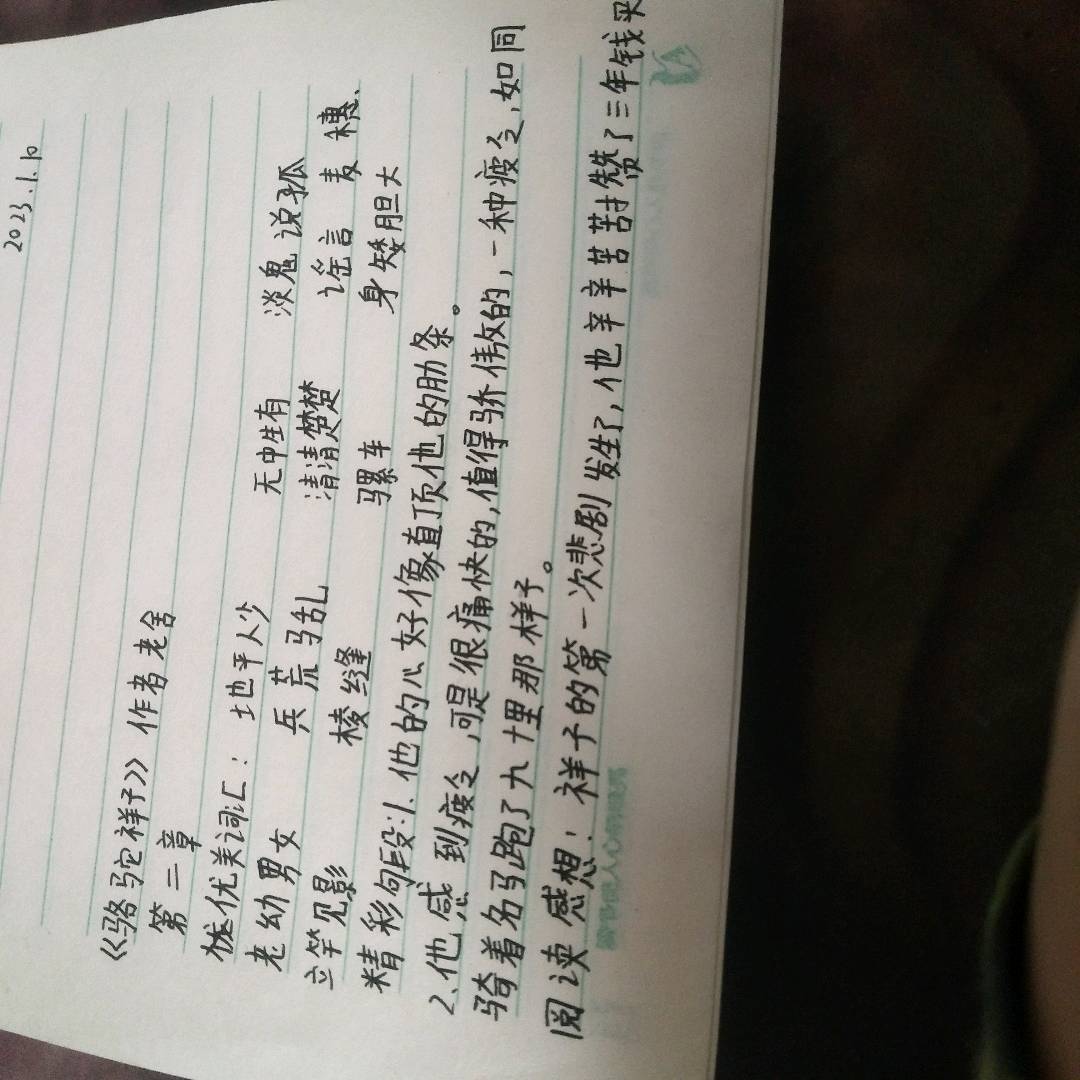 2023.1.10
《骆驼祥子》作者老舍
第二章
优美词汇：地平人少 无中生有 淡鬼说狐
老幼男女 兵荒马乱 清清楚楚 谣言 麦穗、
立竿见影 棱缝 骡车 身矮胆大
精彩句段：1.他的心好像直顶他的肋条。
2、他感到疲乏，可是很痛快的，值得骄傲的，一种疲乏，如同
骑着名马跑了九十里那样子。
阅读感想：祥子的第一次悲剧发生了，他辛辛苦苦攒了三年钱买